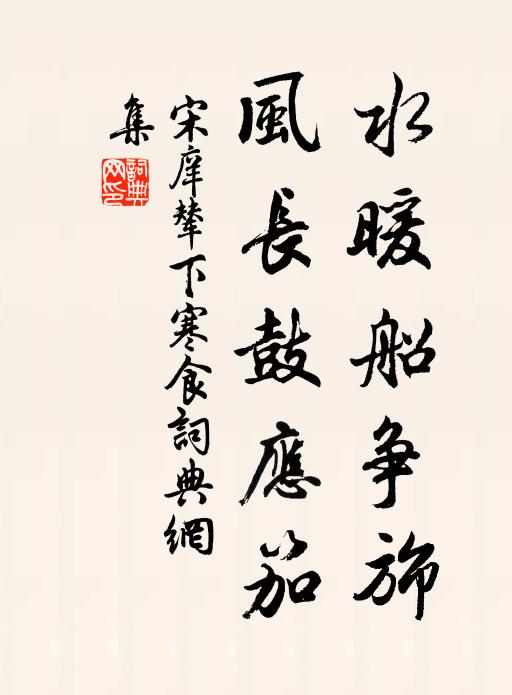 水暖船争旆
風長鼓應笳
宋庠輦下寒食詞典網
集
詞典
网印